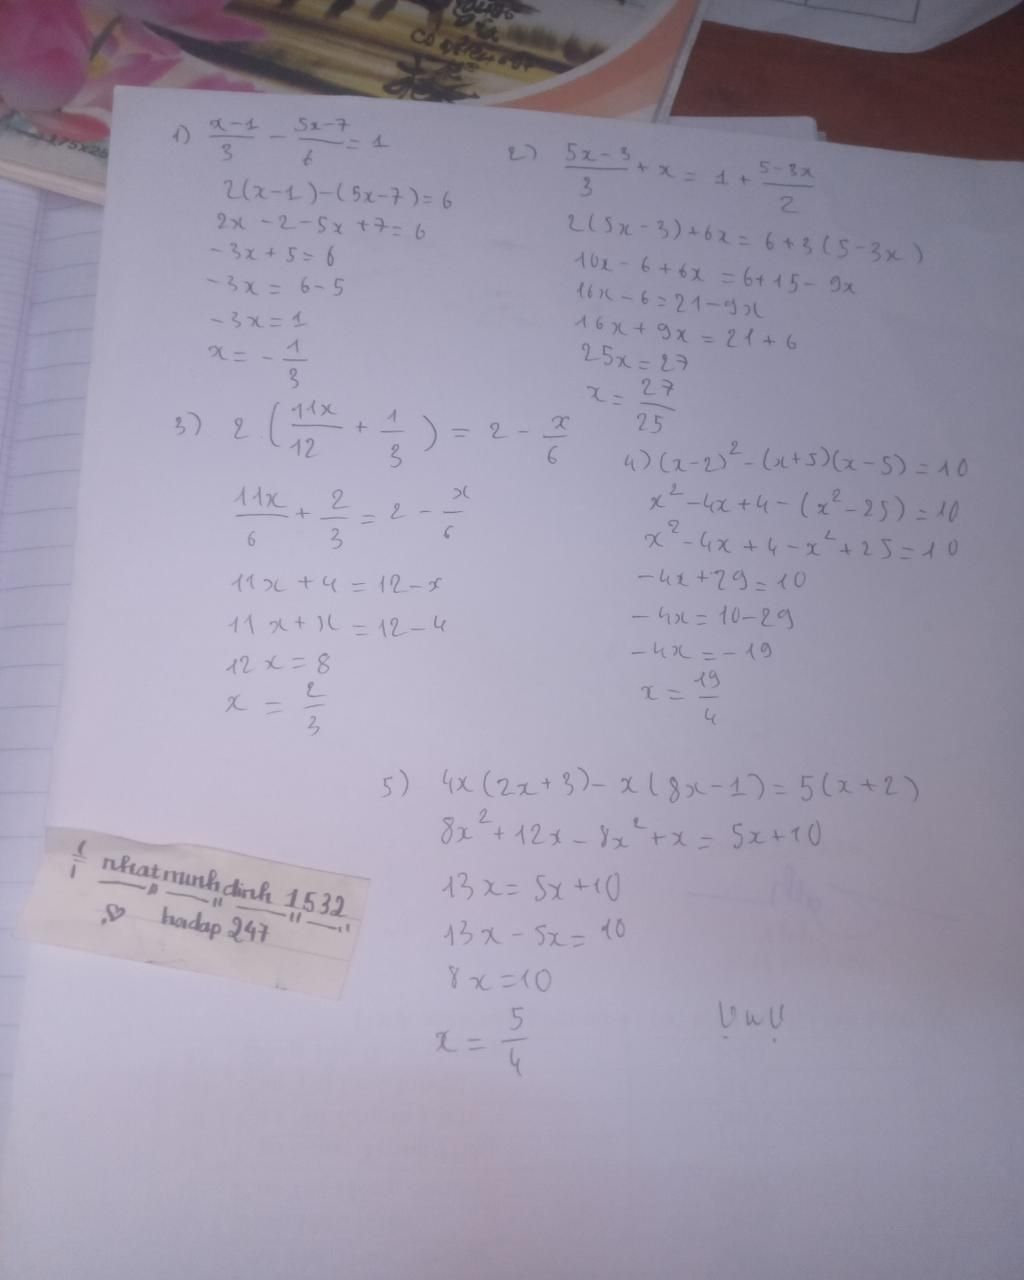 1) \frac{x-1}{3} - \frac{5x-7}{6} = 1
2(x-1)-(5x-7)=6
2x-2-5x+7=6
-3x+5=6
-3x=6-5
-3x=1
x=-\frac{1}{3}
2) \frac{5x-3}{3}+x=1+\frac{5-3x}{2}
2(5x-3)+6x=6+3(5-3x)
10x-6+6x=6+15-9x
16x-6=21-9x
16x+9x=21+6
25x=27
x=\frac{27}{25}
3) 2.(\frac{11x}{12}+\frac{1}{3})=2-\frac{x}{6}
\frac{11x}{6}+\frac{2}{3}=2-\frac{x}{6}
11x+4=12-x
11x+x=12-4
12x=8
x=\frac{2}{3}
4) (x-2)²-(x+5)(x-5)=10
x²-4x+4-(x²-25)=10
x²-4x+4-x²+25=10
-4x+29=10
-4x=10-29
-4x=-19
x=\frac{19}{4}
5) 4x(2x+3)-x(8x-1)=5(x+2)
8x²+12x-8x²+x=5x+10
13x=5x+10
13x-5x=10
8x=10
x=\frac{5}{4}
UwU
nhatminhdinh1532
hoidap247